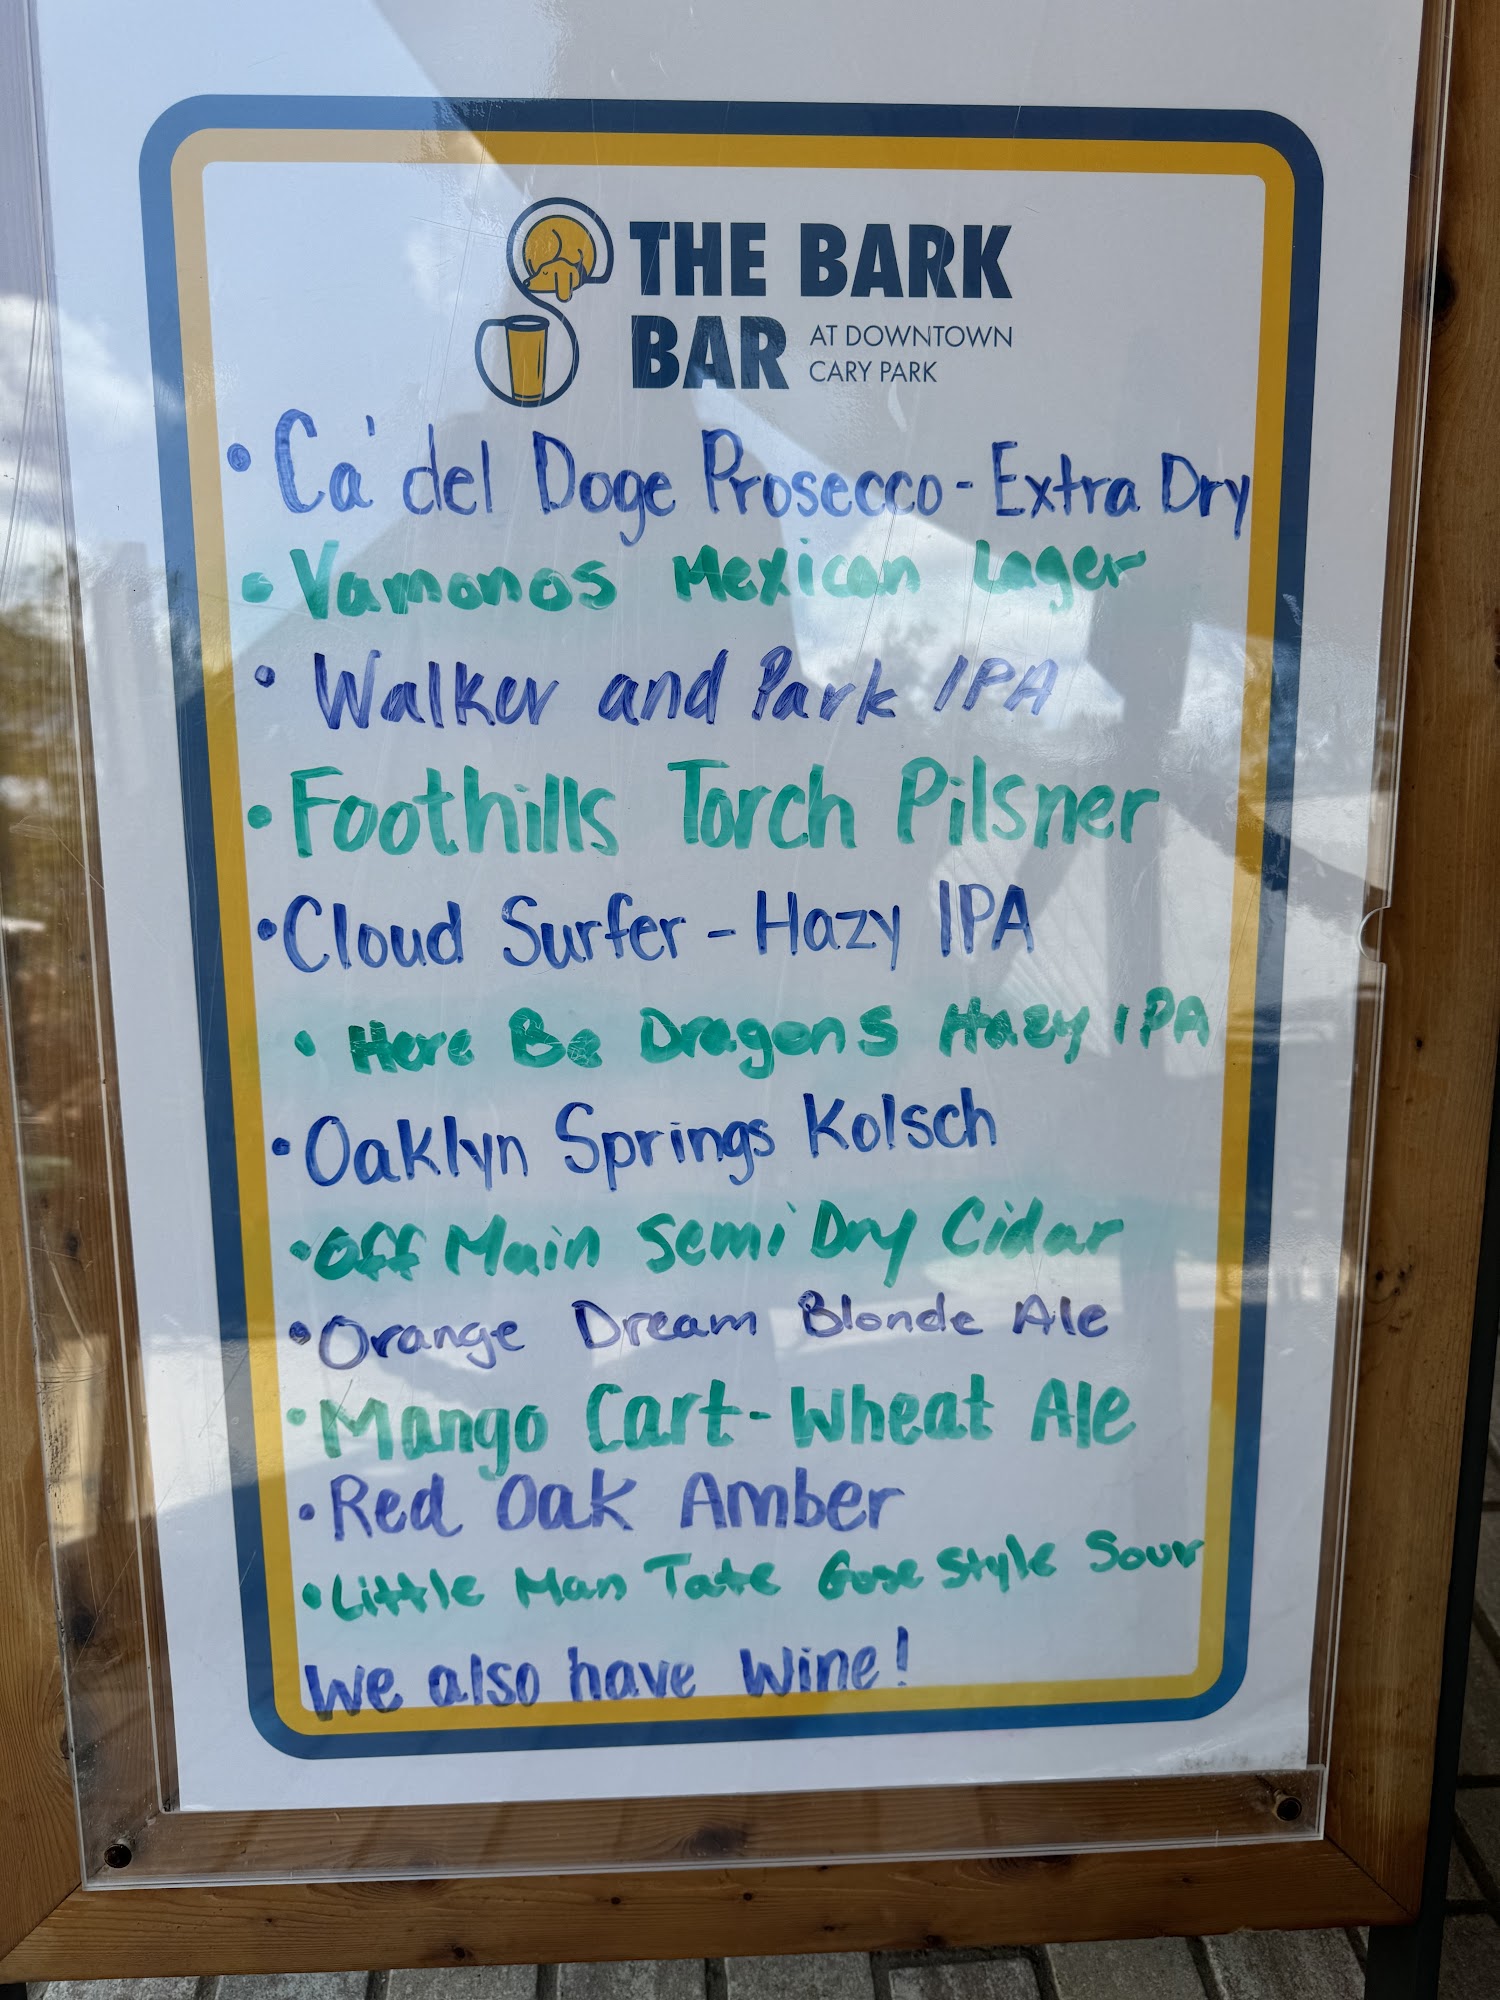 THE BARK
BAR AT DOWNTOWN
CARY PARK
• Ca' del Doge Prosecco - Extra Dry
• Vamonos Mexican Lager
• Walker and Park IPA
• Foothills Torch Pilsner
• Cloud Surfer - Hazy IPA
• Here Be Dragons Hazy IPA
• Oaklyn Springs Kolsch
• Off Main Semi Dry Cidar
• Orange Dream Blonde Ale
• Mango Cart - Wheat Ale
• Red Oak Amber
• Little Man Tate Gose Style Sour
We also have Wine!